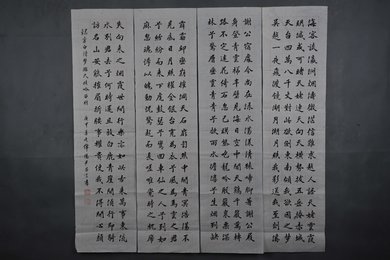 海客談瀛洲煙濤微茫信難求越人語天姥雲霞
明滅或可睹天姥連天向天橫勢拔五嶽掩赤城
天台四萬八千丈對此欲倒東南傾我欲因之夢
吳越一夜飛渡鏡湖月湖月照我影送我至剡溪
謝公宿處今尚在淥水蕩漾清猿啼腳著謝公屐
身登青雲梯半壁見海日空中聞天雞千巖萬轉
路不定迷花倚石忽已暝熊咆龍吟殷巖泉慄深
林兮驚層巔雲青青兮欲雨水澹澹兮生煙列缺
霹靂丘巒崩摧洞天石扉訇然中開青冥浩蕩不
見底日月照耀金銀臺霓為衣兮風為馬雲之君
兮紛紛而來下虎鼓瑟兮鸞回車仙之人兮列如
麻忽魂悸以魄動怳驚起而長嗟惟覺時之枕席
失向來之煙霞世間行樂亦如此古來萬事東流
水別君去兮何時還且放白鹿青崖間須行即騎
訪名山安能摧眉折腰事權貴使我不得開心顏
錄李白詩夢遊天姥吟留別